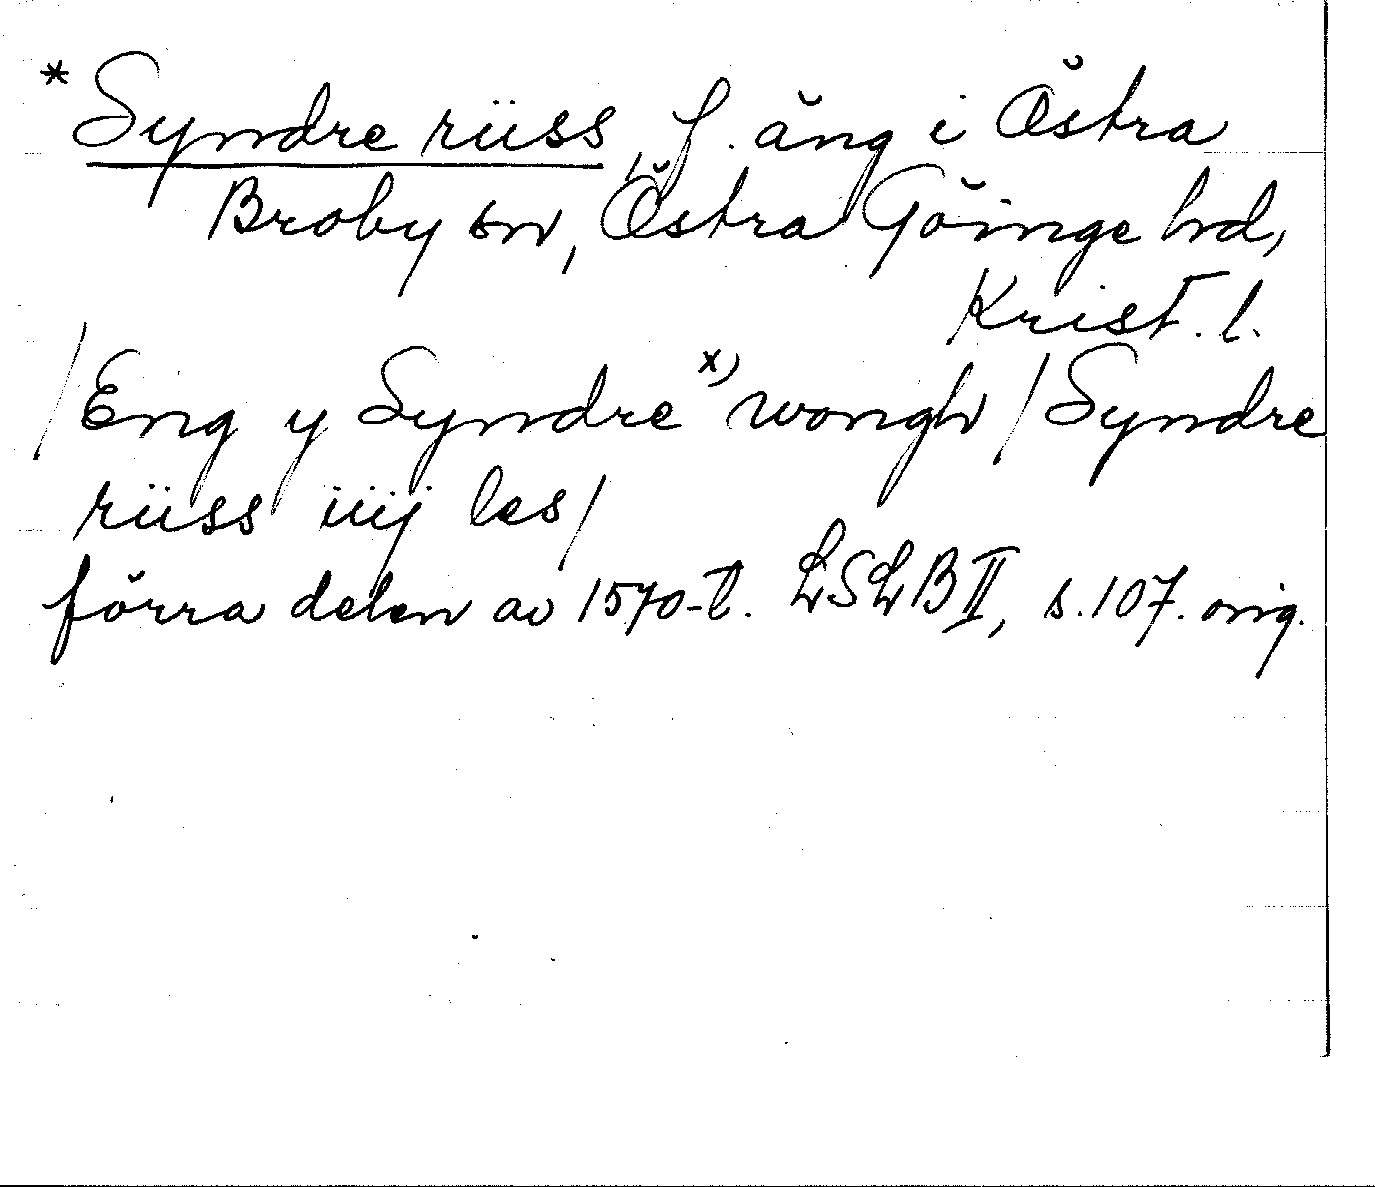 * Syndre rüss, f. äng i Östra
Broby sn, Östra Göinge hd,
Krist. l.
/Eng y Syndre x) wongh / Syndre
rüss iiij les/
förra delen av 1570-t. LSLB II, s. 107. orig.